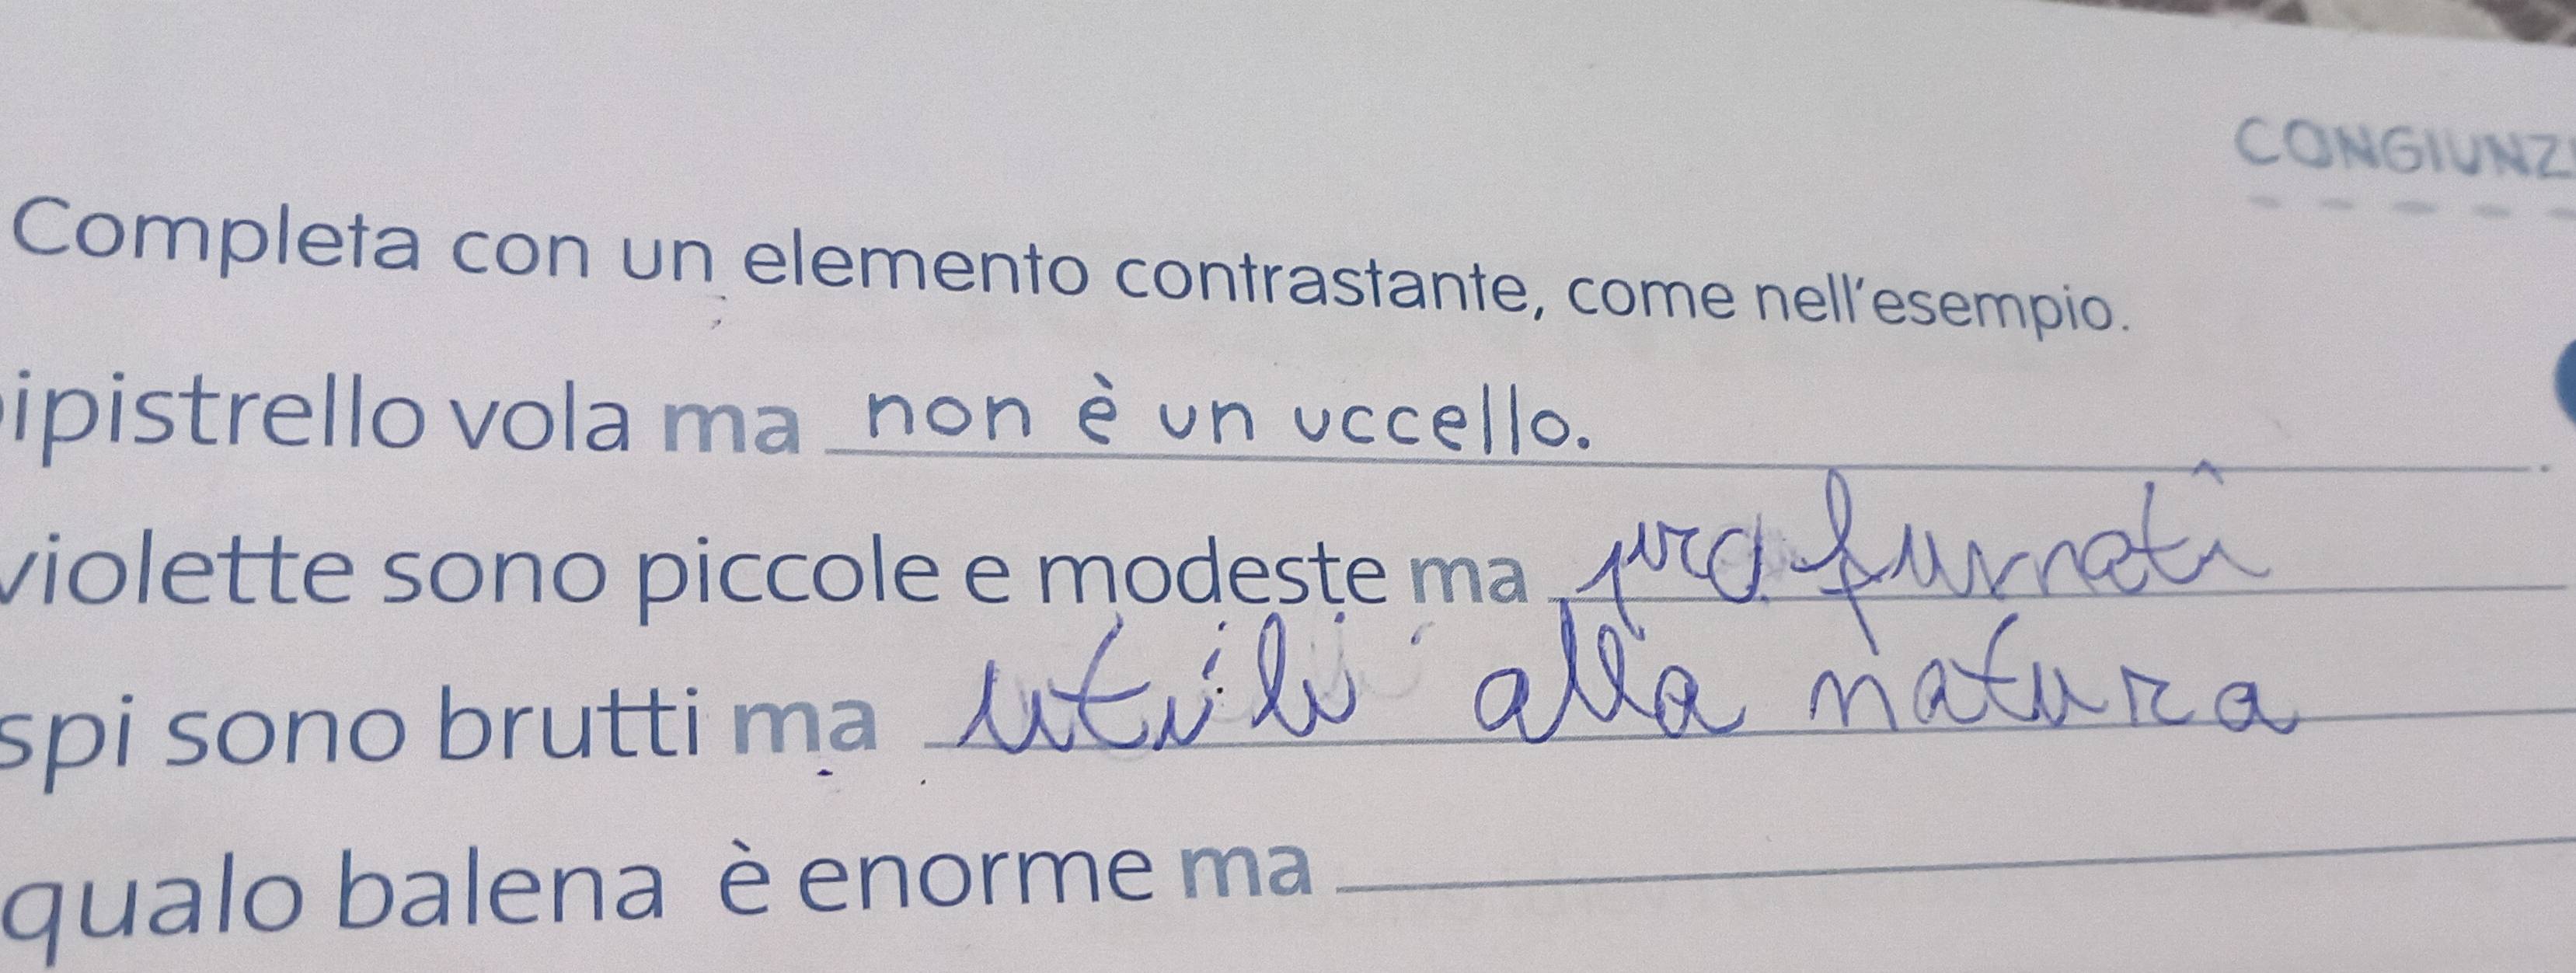 CONGIUNZ
Completa con un elemento contrastante, come nell'esempio.
ipistrello vola ma non è un uccello.
violette sono piccole e modeste ma profumati
spi sono brutti ma utili alla natura
qualo balena è enorme ma